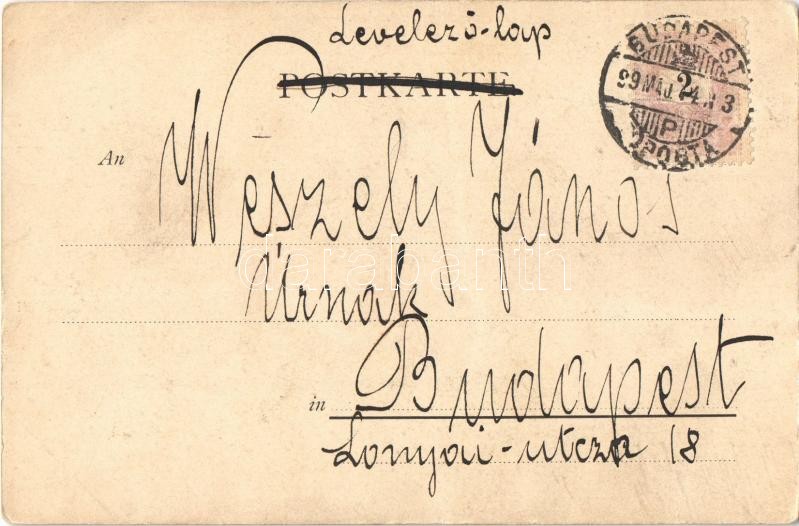 Levelező-lap
POSTKARTE
BUDAPEST
99 MÁJ 3
2
P
FŐPOSTA
An Weszely János
Úrnak
darabanth
in Budapest
Lonyai-utcza 18